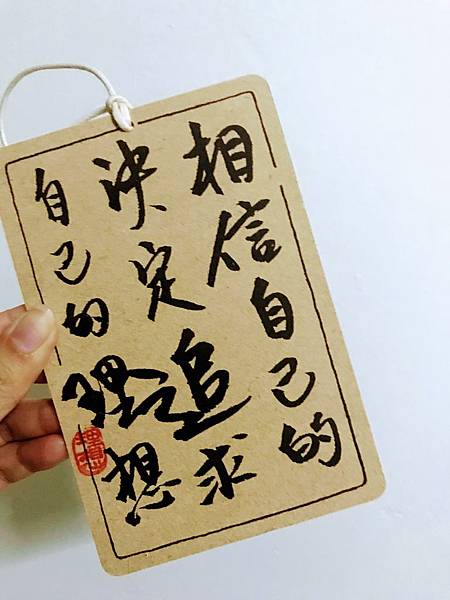 相信自己的
決定追求
自己的理想